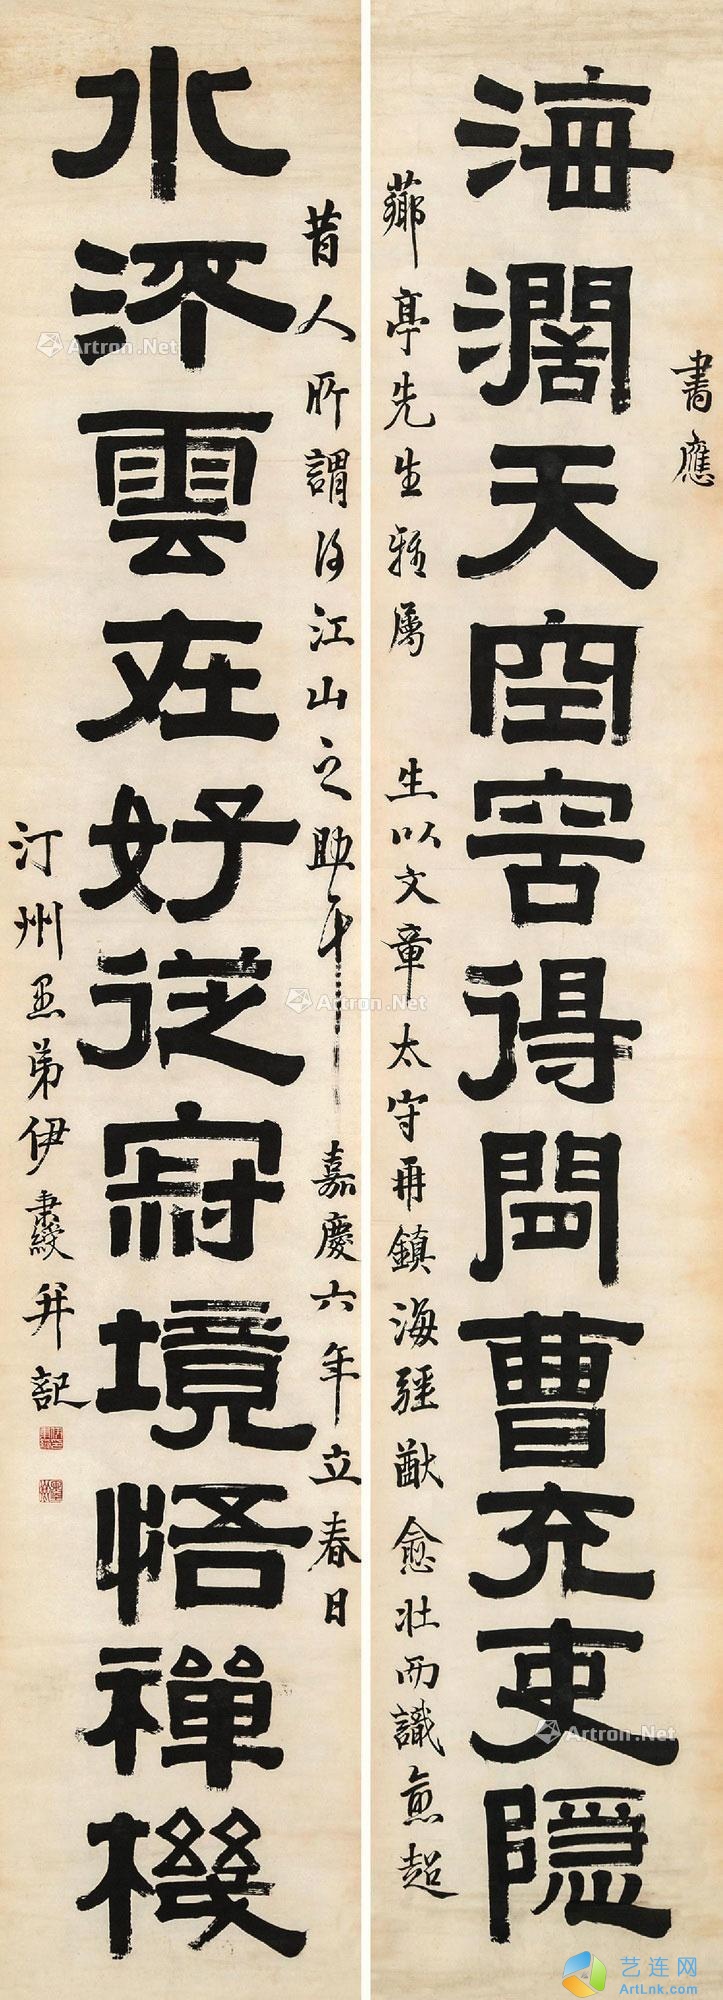 書應
海濶天空容得閒曹充吏隱
薌亭先生雅屬 生以文章太守再鎮海疆猷愈壯而識愈超
昔人所謂得江山之助耶 嘉慶六年立春日
水流雲在好從寂境悟禪機
汀州愚弟伊秉綬并記
Artron.Net
Artron.Net
Artron.Net
Artron.Net
艺连网
ArtLnk.com